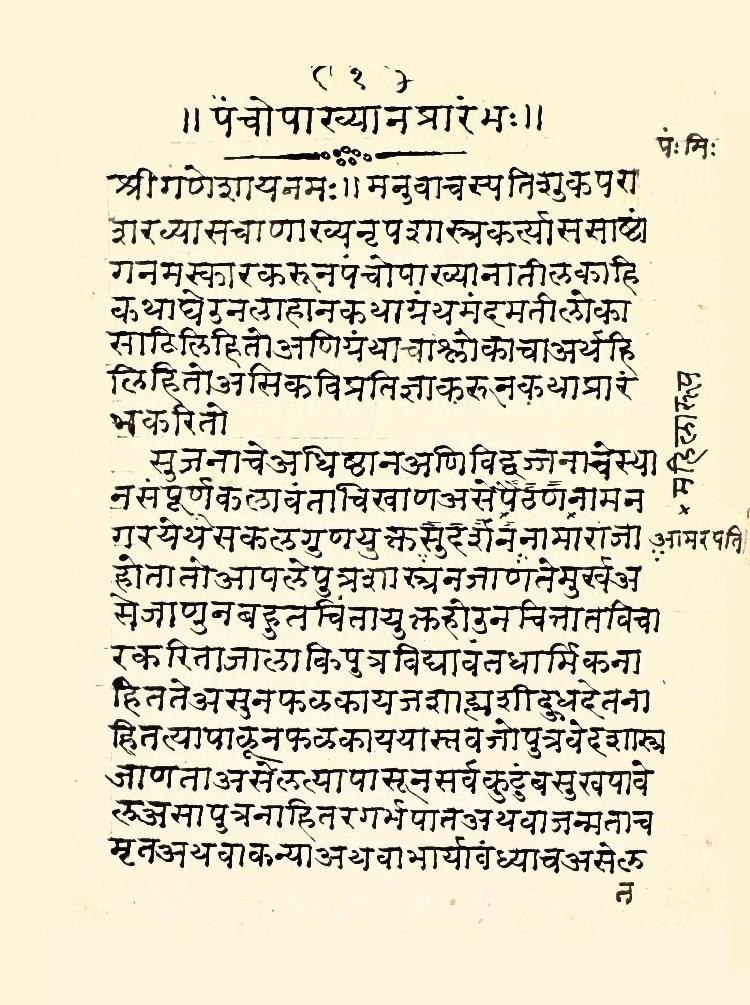 ( १ )
॥ पंचोपाख्यानप्रारंभः॥
पंः मिः
श्रीगणेशायनमः॥ मनुवाचस्पतिशुकपरा
शरव्यासचाणाख्यनृपशास्त्रकर्त्याससाष्टां
गनमस्कारकरूनपंचोपाख्यानातीलकाहि
कथाघेउनलाहानकथाग्रंथमंदमतीलोका
साठिलिहितोअणियंथाचाश्लोकाचाअर्थहि
लिहितोअसिकविप्रतिज्ञाकरूनकथाप्रारं
भकरितो
सुजनाचेअधिष्ठानअणिविद्वज्जनाचेस्था
नसंपूर्णकलावंताचिखाणअसेपैठणनामन
गरयेथेसकलगुणयुक्तसुदर्शननामाराजा
होतातोआपलेपुत्रशास्त्रनजाणतेमुर्खअ
सेजाणुनबहुतचिंतायुक्तहोउनचित्तातविचा
रकरिताजालाकिपुत्रविद्यावंतधार्मिकना
हिततेअसुनफळकायजशाह्मशीदुधदेतना
हितत्यापाळूनफळकाययास्तवजोपुत्रवेदशास्त्र
जाणताअसेलत्यापासूनसर्वकुटुंबसुखपावे
लअसापुत्रनाहितरगर्भपातअथवाजन्मताच
मृतअथवाकन्याअथवाभार्यावंध्याचअसेल
त
× महिलारूप्य
आमरपति